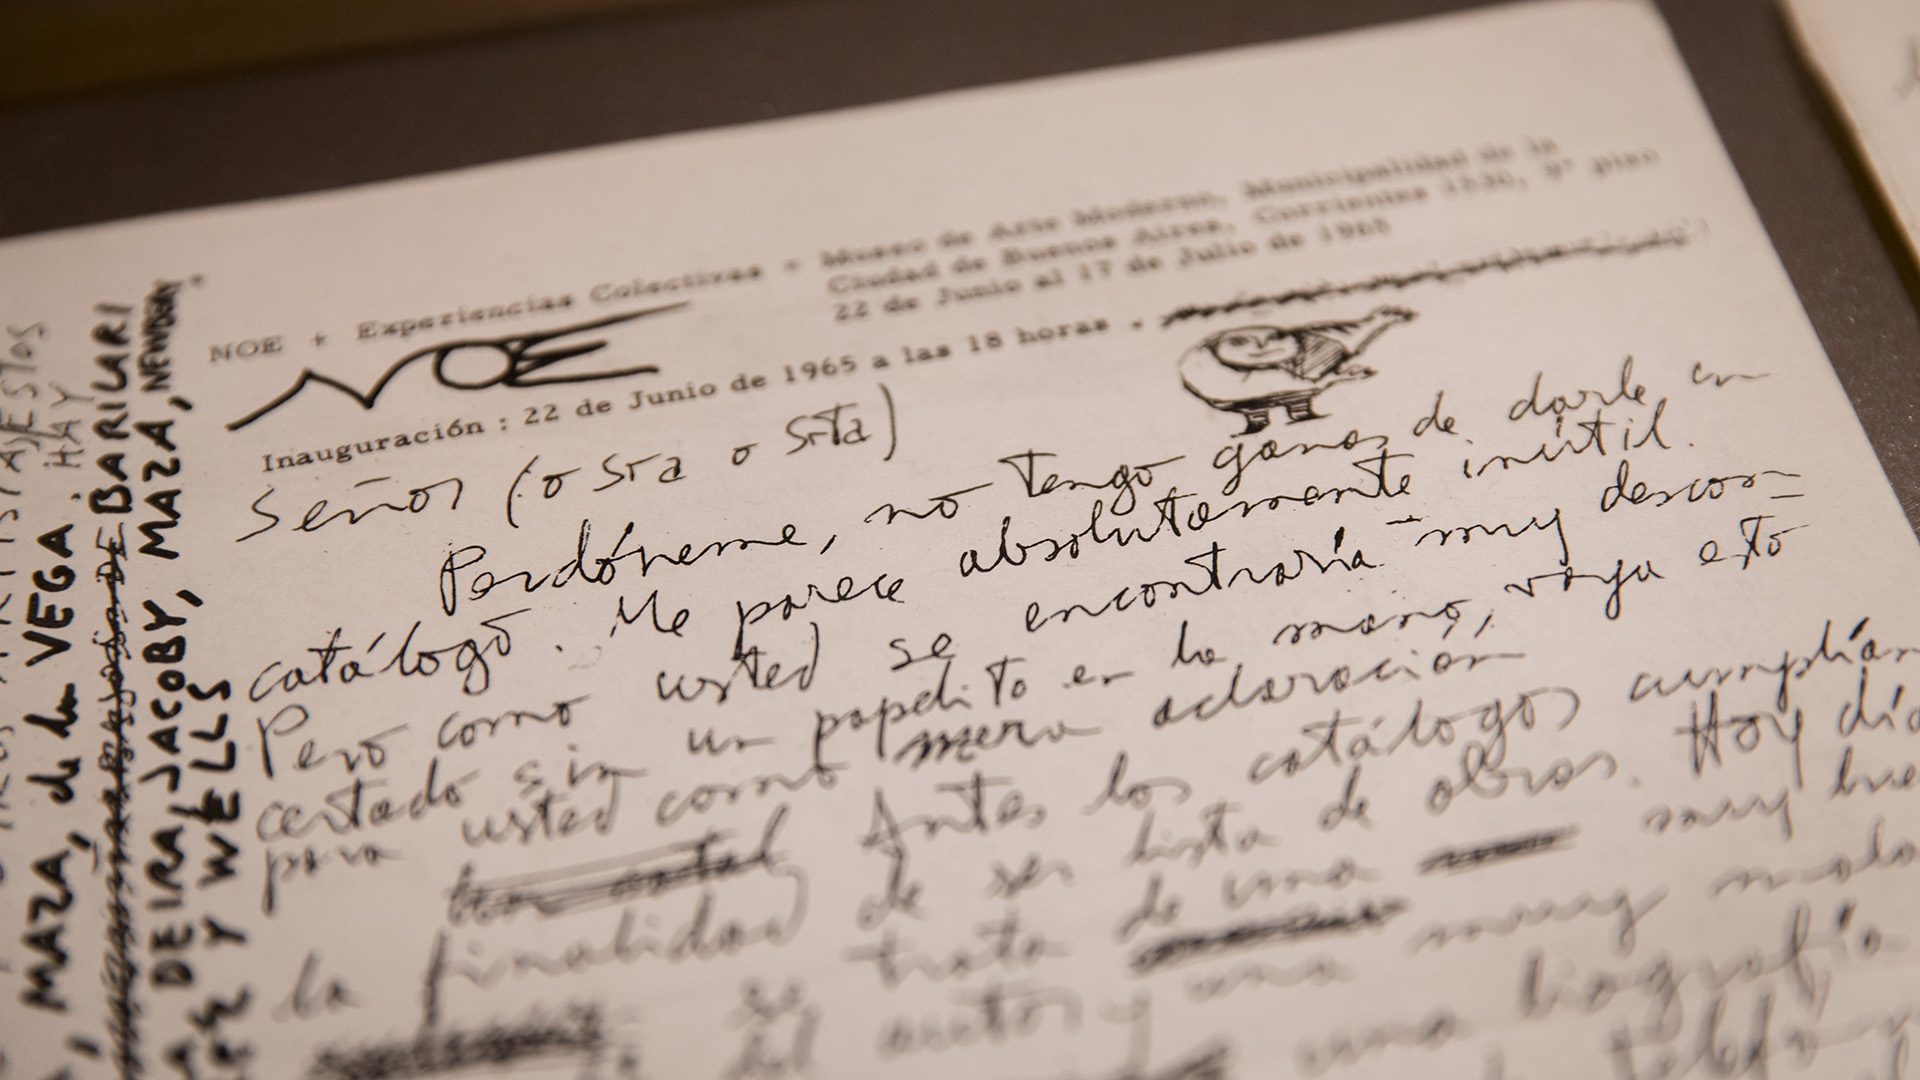 NOE + Experiencias Colectivas - Museo de Arte Moderno, Municipalidad de la
Ciudad de Buenos Aires, Corrientes 1530, 9° piso
22 de Junio al 17 de Julio de 1965
NOE
Inauguración : 22 de Junio de 1965 a las 18 horas .
Señor (o sra o srta)
Perdóneme, no tengo ganas de darle un
catálogo. Me parece absolutamente inútil.
Pero como usted se encontraría muy descon=
certado sin un papelito en la mano, vaya esto
para usted como mera aclaración
Antes los catálogos cumplían
la finalidad de ser lista de obras. Hoy día
se trata de una muy
del autor y una muy mala
una biografía
HAY
MAZA, de la VEGA
BARILARI
DEIRA, JACOBY, MAZA, NEWBERY
Y WELLS